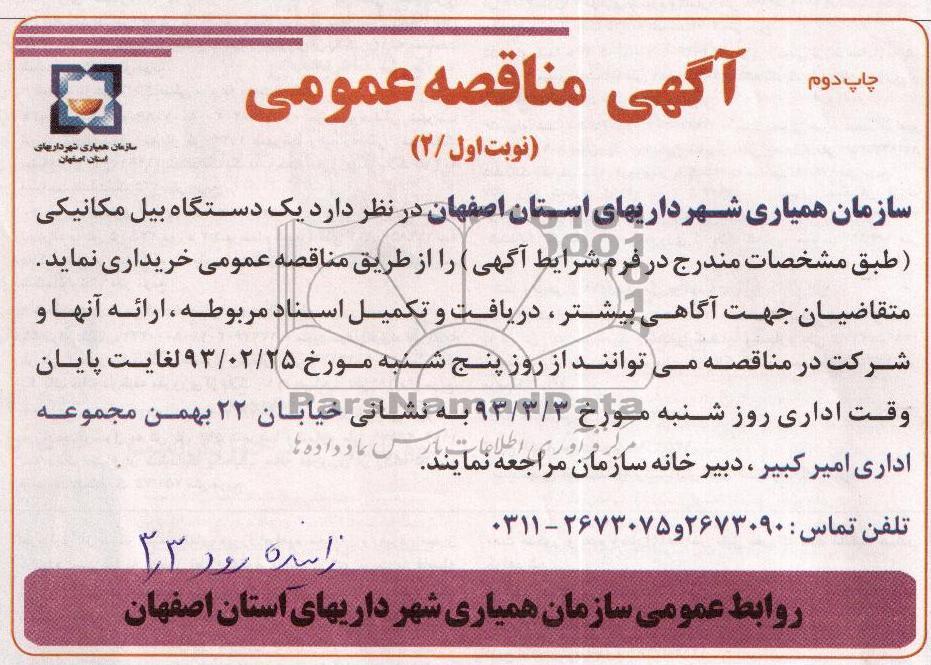 چاپ دوم
آگهی مناقصه عمومی
(نوبت اول /۲)
سازمان همیاری شهرداریهای
استان اصفهان
سازمان همیاری شهرداریهای استان اصفهان در نظر دارد یک دستگاه بیل مکانیکی
(طبق مشخصات مندرج در فرم شرایط آگهی) را از طریق مناقصه عمومی خریداری نماید.
متقاضیان جهت آگاهی بیشتر، دریافت و تکمیل اسناد مربوطه، ارائه آنها و
شرکت در مناقصه می توانند از روز پنج شنبه مورخ ۹۳/۰۲/۲۵ لغایت پایان
وقت اداری روز شنبه مورخ ۹۳/۳/۳ به نشانی خیابان ۲۲ بهمن مجموعه
ParaNamadData
مرکز فرآوری اطلاعات پارس نماد داده ها
اداری امیر کبیر، دبیر خانه سازمان مراجعه نمایند.
تلفن تماس: ۲۶۷۳۰۹۰و۲۶۷۳۰۷۵-۰۳۱۱
زاینده رود
روابط عمومی سازمان همیاری شهرداریهای استان اصفهان